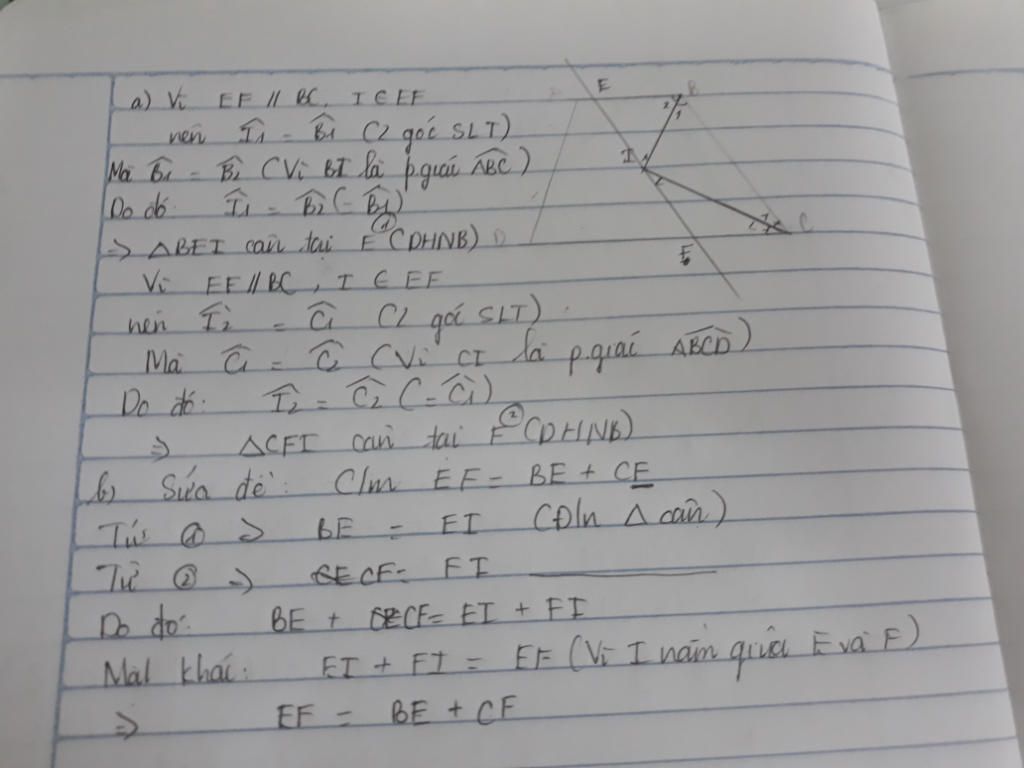 a) Vì EF // BC, I ∈ EF
nên Î1 = B̂1 (2 góc SLT)
Mà B̂1 = B̂2 (Vì BI là p.giác ABC)
Do đó: Î1 = B̂2 (= B̂1)
=> △BEI cân tại E ① (DHNB)
Vì EF // BC, I ∈ EF
nên Î2 = Ĉ1 (2 góc SLT)
Mà Ĉ1 = Ĉ2 (Vì CI là p.giác ABCD)
Do đó: Î2 = Ĉ2 (= Ĉ1)
=> △CFI cân tại F ② (DHNB)
b) Sửa đề: C/m EF = BE + CF
Từ ① => BE = EI (Đ/n △ cân)
Từ ② => CF = FI
Do đó: BE + CF = EI + FI
Mặt khác: EI + FI = EF (Vì I nằm giữa E và F)
=> EF = BE + CF
E
B
2 1
I
1
2
1
2
C
D
F